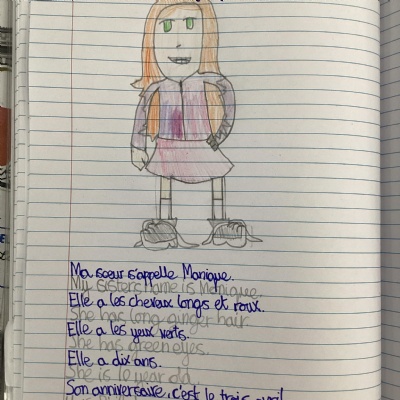 Ma sœur s'appelle Monique.
My sisters name is Monique.
Elle a les cheveux longs et roux.
She has long ginger hair.
Elle a les yeux verts.
She has green eyes.
Elle a dix ans.
She is 10 year old
Son anniversaire, c'est le trois avril